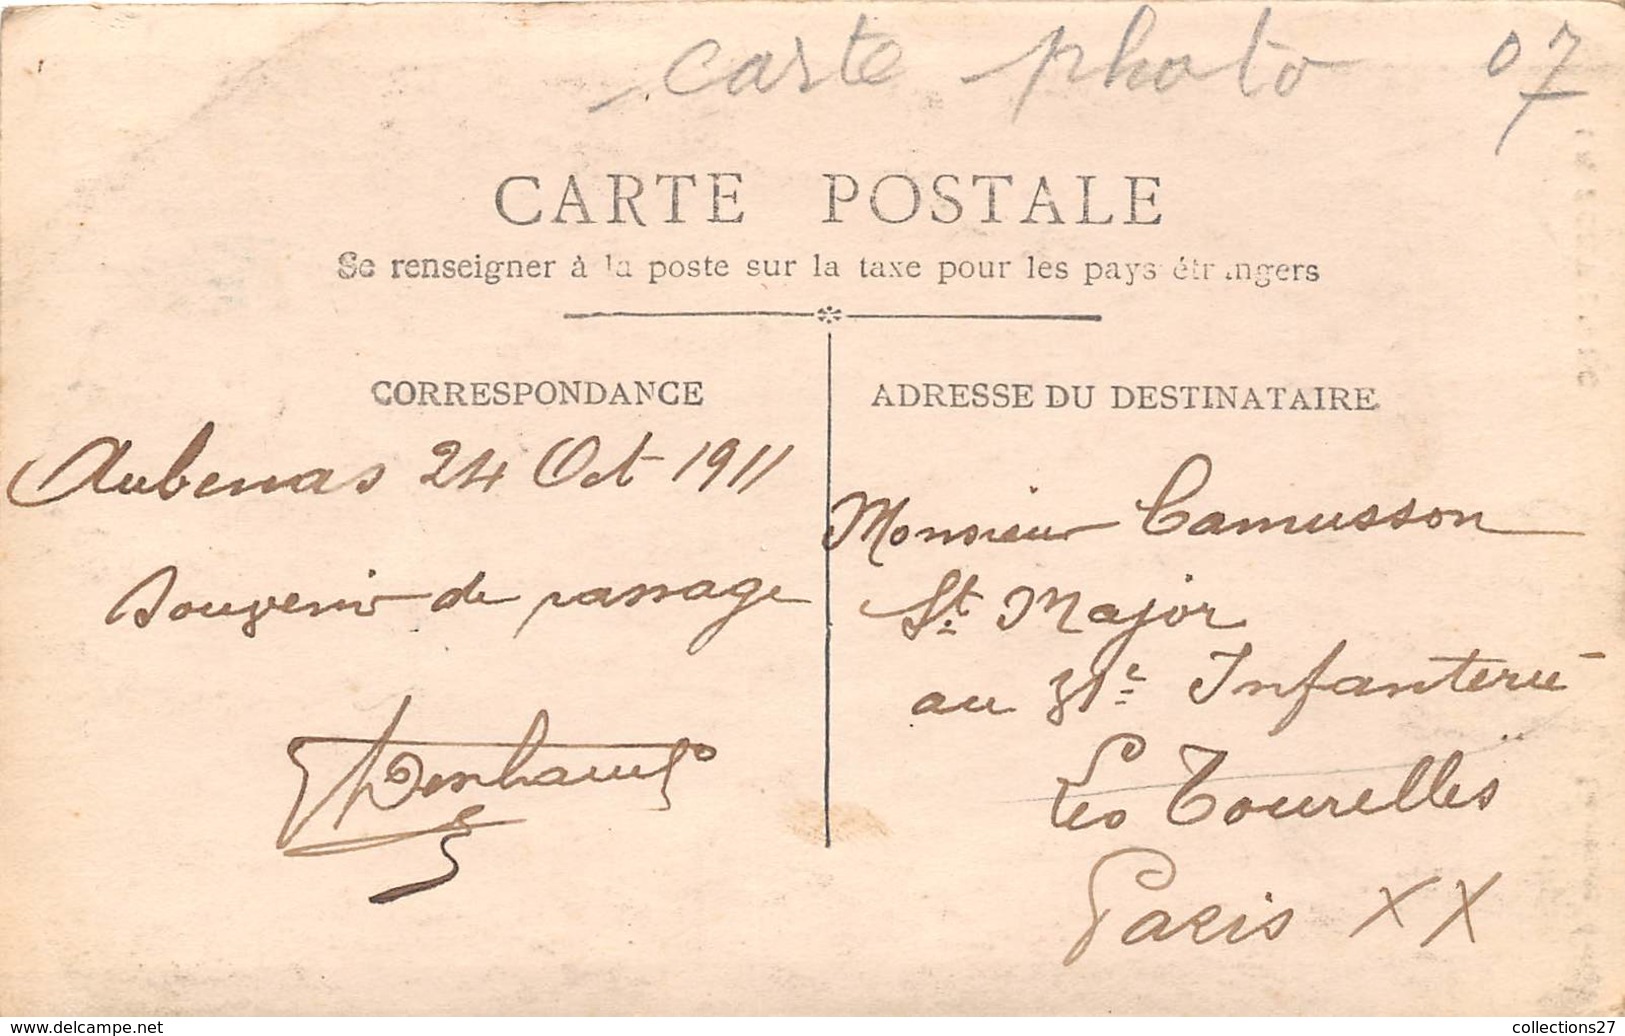 carte photo 07
CARTE POSTALE
Se renseigner à la poste sur la taxe pour les pays étrangers
CORRESPONDANCE
Aubenas 24 Oct 1911
Souvenir de passage
ADRESSE DU DESTINATAIRE
Monsieur Camusson
St. Major
au 31e Infanterie
Les Tourelles
Paris XX
www.delcampe.net
collections27